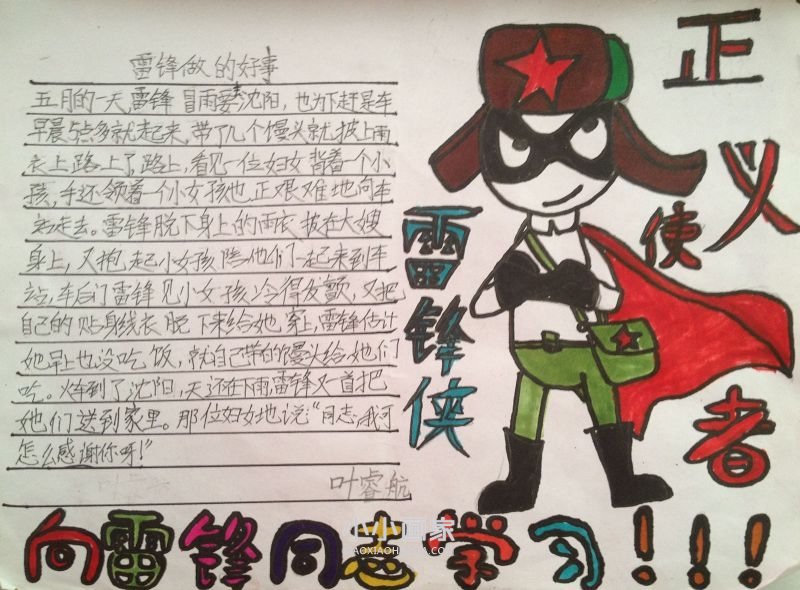 雷锋做的好事
五月的一天,雷锋冒雨要去沈阳,也为下赶是车
早晨5点多就起来,带了几个馒头就披上雨
衣上路上了,路上,看见一位妇女背着一个小
孩,手还领着一个小女孩也正艰难地向车
走去。雷锋脱下身上的雨衣披在大嫂
身上,又抱起小女孩陪他们一起来到车
站,车后门雷锋见小女孩冷得发颤,又把
自己的贴身线衣脱下来给她穿上,雷锋估计
她早上也没吃饭,就自己带的馒头给她们
吃。火车到了沈阳,天还在下雨,雷锋又一首把
她们送到家里。那位妇女地说:“同志,我可
怎么感谢你呀!”
叶睿航
正义使者
雷锋侠
向雷锋同志学习!!!
小小画家
AOXIAOHUAJIA.CO